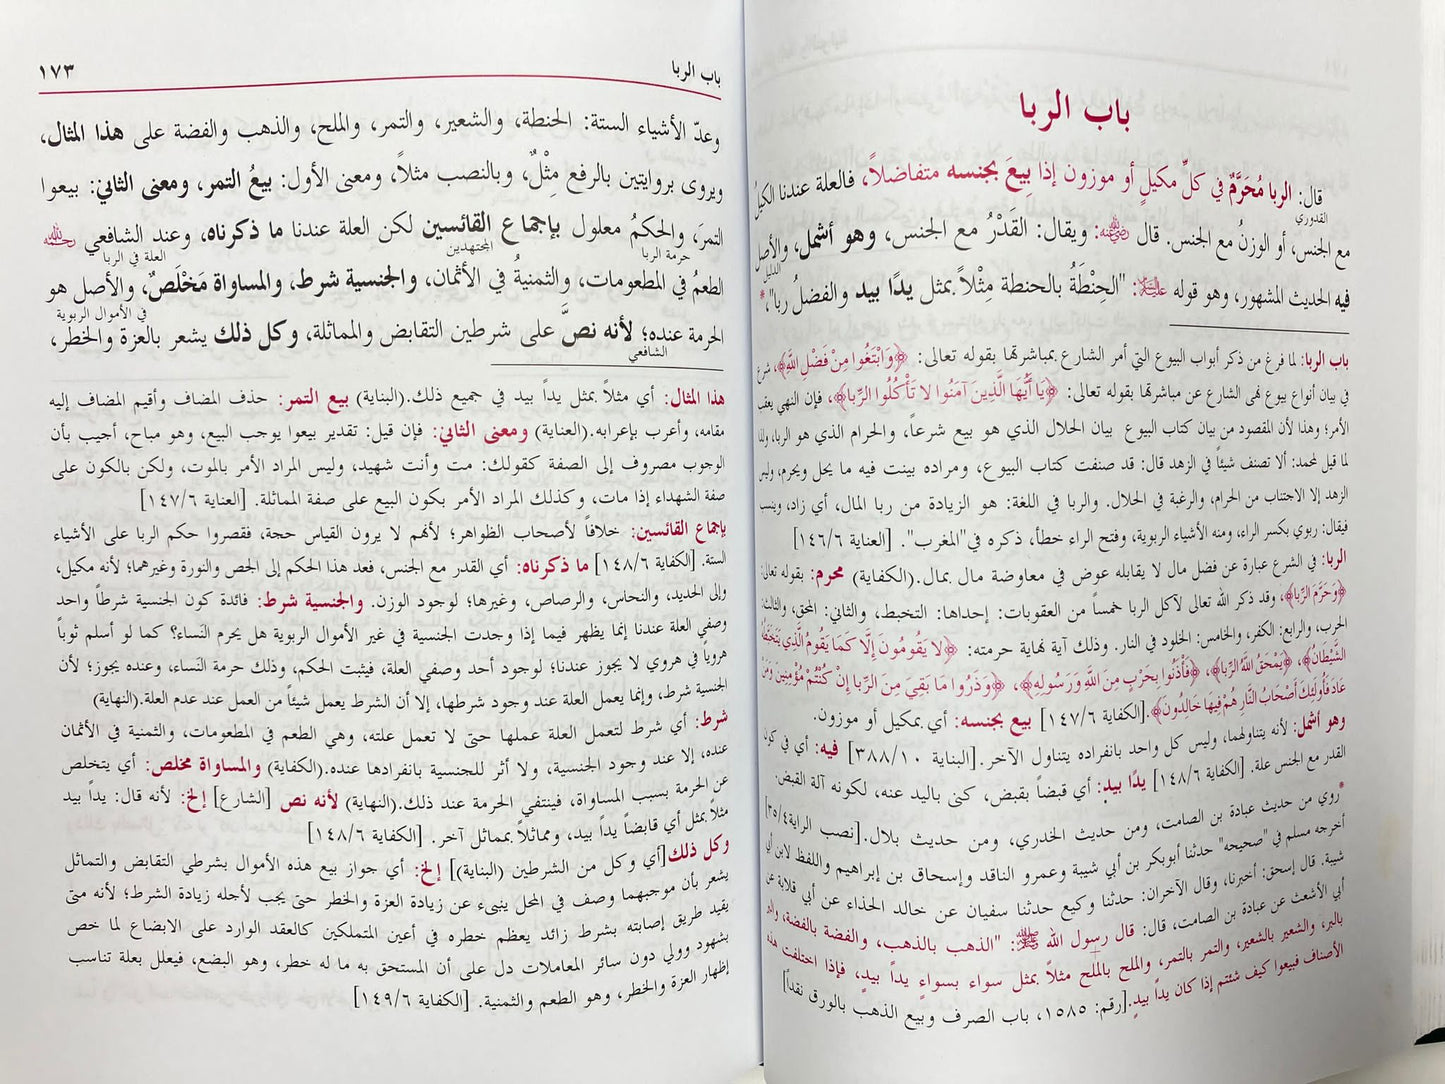 باب الربا
قال: الربا مُحَرَّمٌ في كلِّ مكيلٍ أو موزون إذا بِيعَ بجنسه متفاضلاً، فالعلة عندنا الكيلُ
القدوري
مع الجنس، أو الوزنُ مع الجنس. قال رضي الله عنه: ويقال: القَدْرُ مع الجنس، وهو أشمل، والأصل
الدليل
فيه الحديث المشهور، وهو قوله عليه السلام: "الحِنْطَةُ بالحنطة مِثْلاً بمثل يدًا بيد والفضلُ ربا"،*
باب الربا: لما فرغ من ذكر أبواب البيوع التي أمر الشارع بمباشرتها بقوله تعالى: ﴿وَابْتَغُوا مِنْ فَضْلِ اللَّهِ﴾، شرع
في بيان أنواع بيوع نهى الشارع عن مباشرتها بقوله تعالى: ﴿يَا أَيُّهَا الَّذِينَ آمَنُوا لا تَأْكُلُوا الرِّبا﴾، فإن النهي يعقب
الأمر؛ وهذا لأن المقصود من بيان كتاب البيوع بيان الحلال الذي هو بيع شرعاً، والحرام الذي هو الربا، ولهذا
لما قيل لمحمد: ألا تصنف شيئاً في الزهد قال: قد صنفت كتاب البيوع، ومراده بينت فيه ما يحل ويحرم، وليس
الزهد إلا الاجتناب من الحرام، والرغبة في الحلال. والربا في اللغة: هو الزيادة من ربا المال، أي زاد، وينسب
فيقال: ربوي بكسر الراء، ومنه الأشياء الربوية، وفتح الراء خطأ، ذكره في"المغرب". [العناية ١٤٦/٦]
الربا: في الشرع عبارة عن فضل مال لا يقابله عوض في معاوضة مال بمال.(الكفاية) محرم: بقوله تعالى:
﴿وَحَرَّمَ الرِّبا﴾، وقد ذكر الله تعالى لآكل الربا خمساً من العقوبات: إحداها: التخبط، والثاني: المحق، والثالث:
الحرب، والرابع: الكفر، والخامس: الخلود في النار. وذلك آية نهاية حرمته: ﴿لا يَقُومُونَ إِلَّا كَمَا يَقُومُ الَّذِي يَتَخَبَّطُهُ
الشَّيْطَانُ﴾، ﴿يَمْحَقُ اللَّهُ الرِّبا﴾، ﴿فَأْذَنُوا بِحَرْبٍ مِنَ اللَّهِ وَرَسُولِهِ﴾، ﴿وَذَرُوا مَا بَقِيَ مِنَ الرِّبا إِنْ كُنْتُمْ مُؤْمِنِينَ وَمَنْ
عَادَ فَأُولَئِكَ أَصْحَابُ النَّارِ هُمْ فِيهَا خَالِدُونَ﴾.[الكفاية ١٤٧/٦] بيع بجنسه: أي بمكيل أو موزون.
وهو أشمل: لأنه يتناولهما، وليس كل واحد بانفراده يتناول الآخر.[البناية ٣٨٨/١٠] فيه: أي في كون
القدر مع الجنس علة. [الكفاية ١٤٨/٦] يدًا بيدٍ: أي قبضاً بقبض، كنى باليد عنه، لكونه آلة القبض.
*روي من حديث عبادة بن الصامت، ومن حديث الخدري، ومن حديث بلال.[نصب الراية٣٥/٤]
أخرجه مسلم في "صحيحه" حدثنا أبوبكر بن أبي شيبة وعمرو الناقد وإسحاق بن إبراهيم واللفظ لابن أبي
شيبة. قال إسحق: أخبرنا، وقال الآخران: حدثنا وكيع حدثنا سفيان عن خالد الحذاء عن أبي قلابة عن
أبي الأشعث عن عبادة بن الصامت، قال: قال رسول الله ﷺ: "الذهب بالذهب، والفضة بالفضة، والبر
بالبر، والشعير بالشعير، والتمر بالتمر، والملح بالملح مثلاً بمثل سواء بسواءٍ يداً بيدٍ، فإذا اختلفت هذه
الأصناف فبيعوا كيف شئتم إذا كان يداً بيدٍ.[رقم: ١٥٨٥، باب الصرف وبيع الذهب بالورق نقداً]
باب الربا ١٧٣
وعدّ الأشياء الستة: الحنطة، والشعير، والتمر، والملح، والذهب والفضة على هذا المثال،
ويروى بروايتين بالرفع مِثْلٌ، وبالنصب مثلاً، ومعنى الأول: بيعُ التمر، ومعنى الثاني: بيعوا
التمرَ، والحكمُ معلول بإجماع القائسين لكن العلة عندنا ما ذكرناه، وعند الشافعي رحمه الله
حرمة الربا المجتهدين العلة في الربا
الطعمُ في المطعومات، والثمنيةُ في الأثمان، والجنسية شرط، والمساواة مَخْلَصٌ، والأصل هو
في الأموال الربوية
الحرمة عنده؛ لأنه نصَّ على شرطين التقابض والمماثلة، وكل ذلك يشعر بالعزة والخطر،
الشافعي
هذا المثال: أي مثلاً بمثل يداً بيد في جميع ذلك.(البناية) بيع التمر: حذف المضاف وأقيم المضاف إليه
مقامه، وأعرب بإعرابه.(العناية) ومعنى الثاني: فإن قيل: تقدير بيعوا يوجب البيع، وهو مباح، أجيب بأن
الوجوب مصروف إلى الصفة كقولك: مت وأنت شهيد، وليس المراد الأمر بالموت، ولكن بالكون على
صفة الشهداء إذا مات، وكذلك المراد الأمر بكون البيع على صفة المماثلة. [العناية ١٤٧/٦]
بإجماع القائسين: خلافاً لأصحاب الظواهر؛ لأنهم لا يرون القياس حجة، فقصروا حكم الربا على الأشياء
الستة. [الكفاية ١٤٨/٦] ما ذكرناه: أي القدر مع الجنس، فعد هذا الحكم إلى الجص والنورة وغيرهما؛ لأنه مكيل،
وإلى الحديد، والنحاس، والرصاص، وغيرها؛ لوجود الوزن. والجنسية شرط: فائدة كون الجنسية شرطاً واحد
وصفي العلة عندنا إنما يظهر فيما إذا وجدت الجنسية في غير الأموال الربوية هل يحرم النَساء؟ كما لو أسلم ثوباً
هروياً في هروي لا يجوز عندنا؛ لوجود أحد وصفي العلة، فيثبت الحكم، وذلك حرمة النَساء، وعنده يجوز؛ لأن
الجنسية شرط، وإنما يعمل العلة عند وجود شرطها، إلا أن الشرط يعمل شيئاً من العمل عند عدم العلة.(النهاية)
شرط: أي شرط لتعمل العلة عملها حتى لا تعمل علته، وهي الطعم في المطعومات، والثمنية في الأثمان
عنده، إلا عند وجود الجنسية، ولا أثر للجنسية بانفرادها عنده.(الكفاية) والمساواة مخلص: أي يتخلص
عن الحرمة بسبب المساواة، فينتفي الحرمة عند ذلك.(النهاية) لأنه نص [الشارع] إلخ: لأنه قال: يداً بيد
مثلاً بمثل أي قابضاً يداً بيد، ومماثلاً بمماثل آخر. [الكفاية ١٤٨/٦]
وكل ذلك[أي وكل من الشرطين (البناية)] إلخ: أي جواز بيع هذه الأموال بشرطي التقابض والتماثل
يشعر بأن موجبهما وصف في المحل ينبىء عن زيادة العزة والخطر حتى يجب لأجله زيادة الشرط؛ لأنه متى
يقيد طريق إصابته بشرط زائد يعظم خطره في أعين المتملكين كالعقد الوارد على الابضاع لما خص
بشهود وولي دون سائر المعاملات دل على أن المستحق به ما له خطر، وهو البضع، فيعلل بعلة تناسب
إظهار العزة والخطر، وهو الطعم والثمنية. [الكفاية ١٤٩/٦]